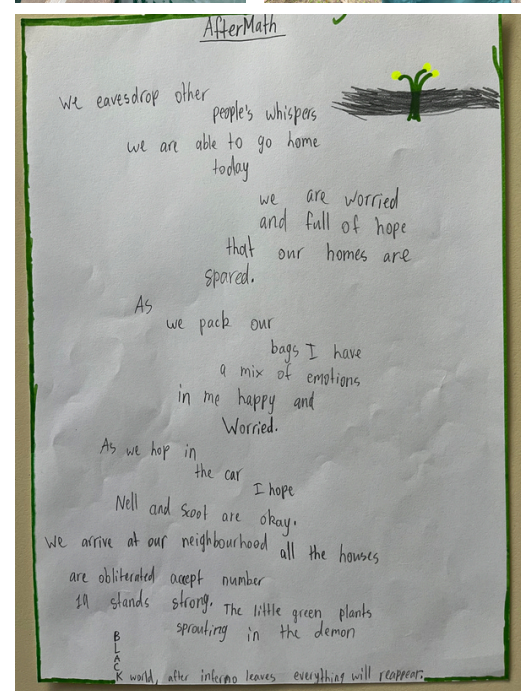 AfterMath
We eavesdrop other
people's whispers
we are able to go home
today
we are worried
and full of hope
that our homes are
spared.
As
we pack our
bags I have
a mix of emotions
in me happy and
Worried.
As we hop in
the car
I hope
Nell and Scoot are okay.
We arrive at our neighbourhood all the houses
are obliterated accept number
19 stands strong. The little green plants
sprouting in the demon
B
L
A
C
K world, after inferno leaves everything will reappear.